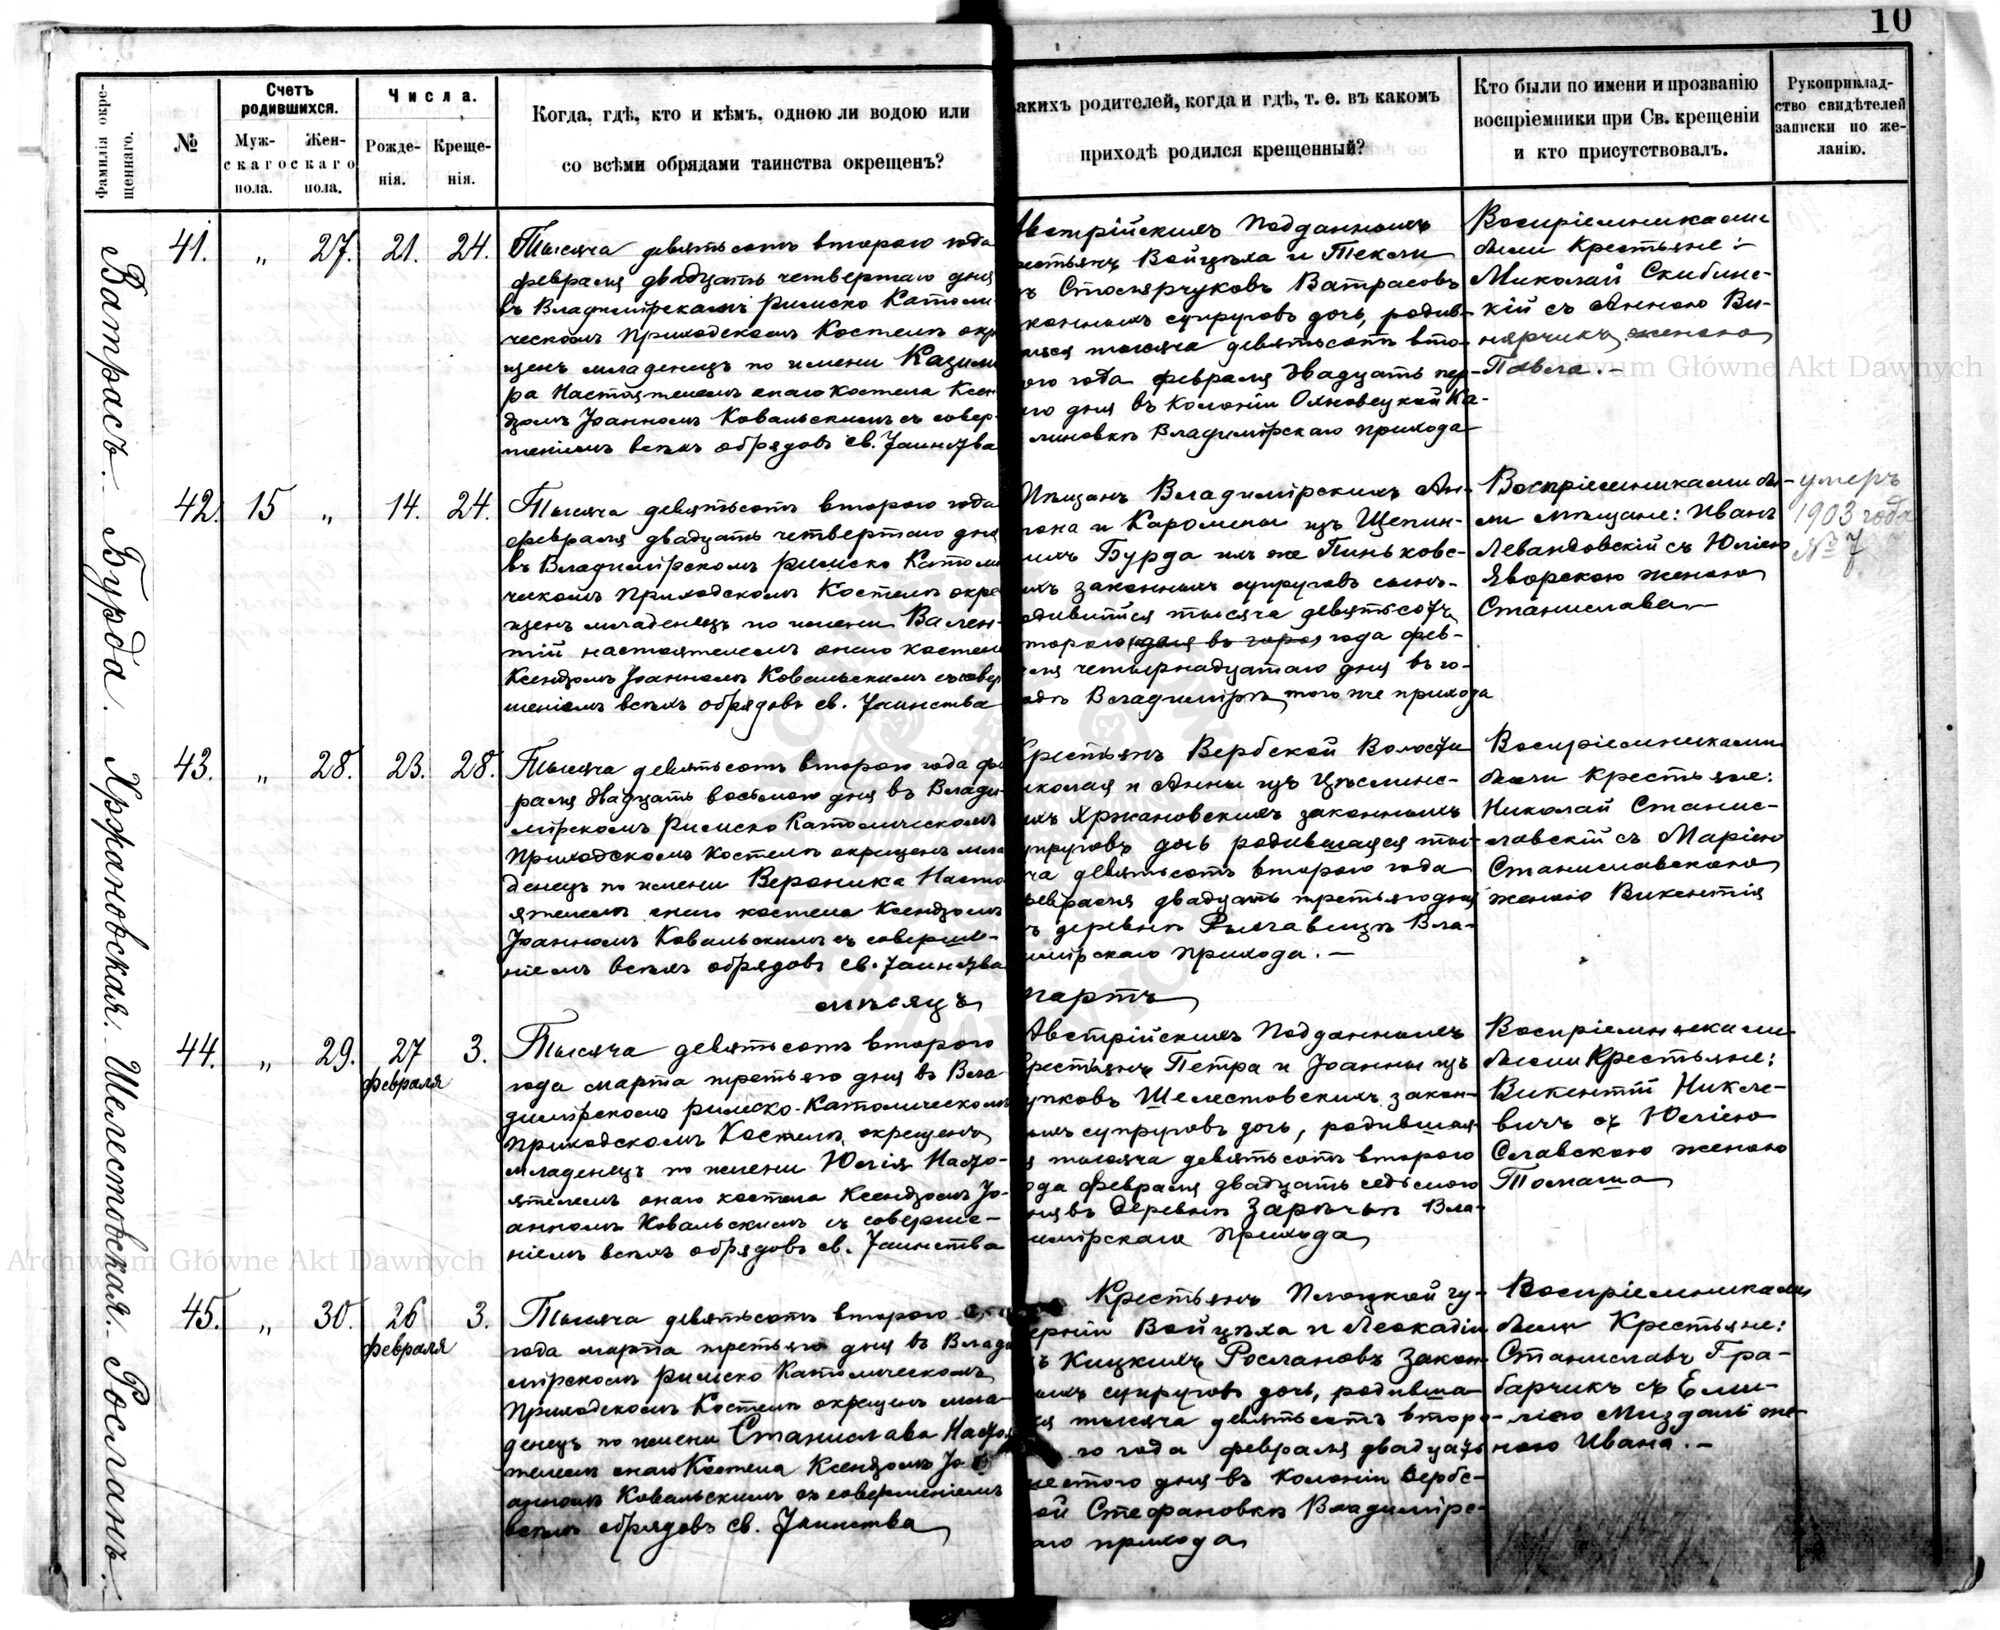 10
Фамилія окре-
щеннаго.
№
Счетъ
родившихся.
Муж-
скаго
пола.
Жен-
скаго
пола.
Числа.
Рожде-
нія.
Креще-
нія.
Когда, гдѣ, кто и кѣмъ, одною ли водою или
со всѣми обрядами таинства окрещенъ?
акихъ родителей, когда и гдѣ, т. е. въ какомъ
приходѣ родился крещенный?
Кто были по имени и прозванію
воспріемники при Св. крещеніи
и кто присутствовалъ.
Рукоприклад-
ство свидѣтелей
записки по же-
ланію.
Ватрасъ.
41. „ 27. 21. 24.
Тысяча девятьсотъ второго года
февраля двадцать четвертаго дня
въ Владимірскомъ римско Католи-
ческомъ Приходскомъ Костелѣ окр
щенъ младенецъ по имени Казими
ра Настоятелемъ онаго костела Ксен
дзомъ Іоанномъ Ковальскимъ съ совер-
шеніемъ всѣхъ обрядовъ св. Таинства
Австрійскихъ Подданныхъ
рестьянъ Войцѣха и Теклы
ъ Столярчуковъ Ватрасовъ
конныхъ супруговъ дочь, родив-
шаяся тысяча девятьсотъ вто-
ого года февраля двадцать пер-
го дня въ колоніи Ольховецкой Ка-
линовкѣ Владимірскаго прихода
Воспріемниками
были Крестьяне:
Миколай Скибинс-
кій съ Анною Ви-
нярчикъ женою
Павла.
Бурда.
42. 15 „ 14. 24.
Тысяча девятьсотъ второго года
февраля двадцать четвертаго дня
въ Владимірскомъ римско Католи
ческомъ Приходскомъ Костелѣ окре
щенъ младенецъ по имени Вален-
тій настоятелемъ онаго костела
Ксендзомъ Іоанномъ Ковальскимъ съ совер
шеніемъ всѣхъ обрядовъ св. Таинства
Мѣщанъ Владимірскихъ Ан-
тона и Каролины изъ Щепин-
ихъ Бурда изъ же Пиньковс-
ихъ законныхъ супруговъ сынъ-
одившійся тысяча девятьсотъ
торого года фев-
ля четырнадцатаго дня въ го-
одѣ Владимірѣ того же прихода
Воспріемниками бы-
ли мѣщане: Иванъ
Левандовскій съ Юліею
Яворскою женою
Станислава
умеръ
1903 года
№ 7
Хржановская.
43. „ 28. 23. 28.
Тысяча девятьсотъ второго года фев
раля двадцать восьмого дня въ Влади-
мірскомъ римско Католическомъ
Приходскомъ Костелѣ окрещенъ мла
денецъ по имени Вероника Насто
ятелемъ онаго костела Ксендзомъ
Іоанномъ Ковальскимъ съ соверше-
ніемъ всѣхъ обрядовъ св. Таинства
Крестьянъ Вербской Волости
иколая и Анны изъ Цѣслинс-
ихъ Хржановскихъ законныхъ
упруговъ дочь родившаяся тыс-
ча девятьсотъ второго года
февраля двадцать третьяго дня
ъ деревнѣ Рылавицѣ Вла-
имірскаго Прихода.
Воспріемниками
были Крестьяне:
Николай Станис-
лавскій съ Маріею
Станиславскою
женою Викентія
мѣсяцъ мартъ
Шелестовская.
44. „ 29. 27 3.
февраля
Тысяча девятьсотъ второго
года марта третьяго дня въ Вла-
димірскомъ римско-Католическомъ
Приходскомъ Костелѣ окрещенъ
младенецъ по имени Юлія Насто-
ятелемъ онаго костела Ксендзомъ Іо-
анномъ Ковальскимъ съ соверше-
ніемъ всѣхъ обрядовъ св. Таинства
Австрійскихъ Подданныхъ
Крестьянъ Петра и Іоанны изъ
упковъ Шелестовскихъ закон-
ныхъ супруговъ дочь, родившая-
я тысяча девятьсотъ второго
ода февраля двадцать седьмого
ня въ Деревнѣ Зарѣчьѣ Вла-
имірскаго Прихода
Воспріемниками
были Крестьяне:
Викентій Никле-
вичъ съ Юліею
Славскою женою
Томаша
Росланъ.
45. „ 30. 26 3.
февраля
Тысяча девятьсотъ второго
года марта третьяго дня въ Влади
мірскомъ римско Католическомъ
Приходскомъ Костелѣ окрещенъ мла-
денецъ по имени Станислава Настоя
телемъ онаго Костела Ксендзомъ Іо
анномъ Ковальскимъ съ совершеніемъ
всѣхъ обрядовъ св. Таинства
Крестьянъ Плоцкой гу-
ерніи Войцѣха и Леокадіи
ъ Кицкихъ Рослановъ Закон-
ныхъ супруговъ дочь, родивша-
ся тысяча девятьсотъ второ-
го года февраля двадцать
шестого дня въ Колоніи Вербс-
ой Стефановкѣ Владимірс-
аго прихода
Воспріемниками
были Крестьяне:
Станиславъ Гра-
барчикъ съ Еми-
ліею Миздаль же-
ною Ивана.
Archiwum Główne Akt Dawnych
Archiwum Główne Akt Dawnych